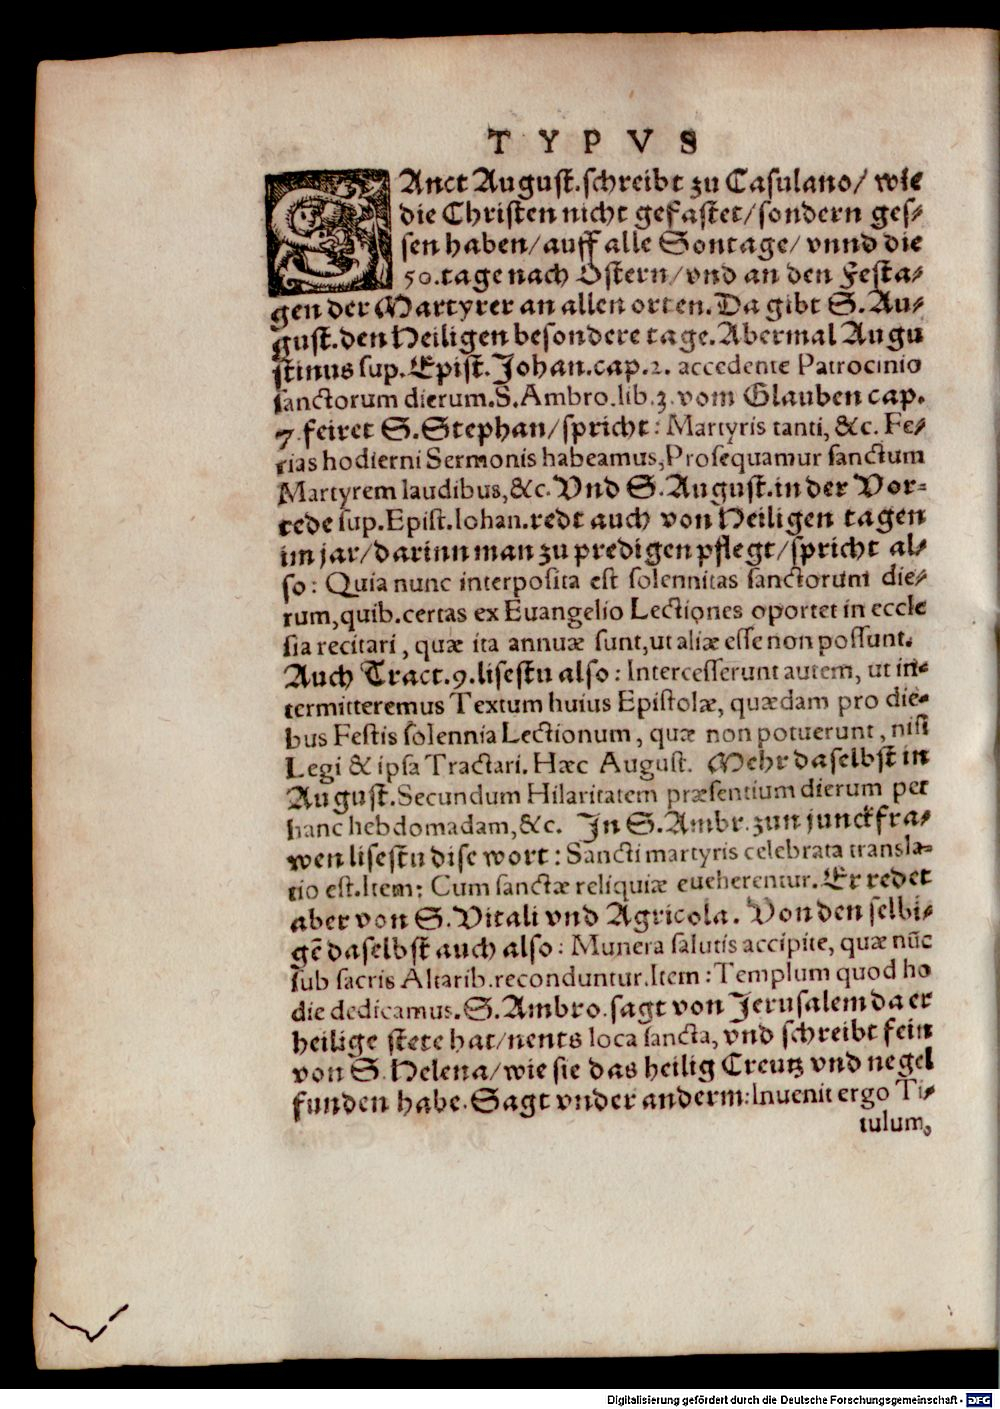 TYPVS
SAnct August. schreibt zu Casulano/ wie
die Christen nicht gefastet/ sondern ges⸗
sen haben/ auff alle Sontage/ vnnd die
50. tage nach Ostern/ vnd an den Festa⸗
gen der Martyrer an allen orten. Da gibt S. Au⸗
gust. den Heiligen besondere tage. Abermal Augu
stinus sup. Epist. Johan. cap. 2. accedente Patrocinio
sanctorum dierum. S. Ambro. lib. 3. vom Glauben cap.
7. feiret S. Stephan/ spricht: Martyris tanti, &c. Fe⸗
rias hodierni Sermonis habeamus, Prosequamur sanctum
Martyrem laudibus, &c. Vnd S. August. in der Vor⸗
rede sup. Epist. Iohan. redt auch von Heiligen tagen
im jar/ darinn man zu predigen pflegt/ spricht al⸗
so: Quia nunc interposita est solennitas sanctorum die⸗
rum, quib. certas ex Euangelio Lectiones oportet in eccle
sia recitari, quæ ita annuæ sunt, ut aliæ esse non possunt.
Auch Tract. 9. lisestu also: Intercesserunt autem, ut in⸗
termitteremus Textum huius Epistolæ, quædam pro die⸗
bus Festis solennia Lectionum, quæ non potuerunt, nisi
Legi & ipsa Tractari. Hæc August. Mehr daselbst in
August. Secundum Hilaritatem præsentium dierum per
hanc hebdomadam, &c. In S. Ambr. zun junckfra⸗
wen lisestu dise wort: Sancti martyris celebrata transla⸗
tio est. Item: Cum sanctæ reliquiæ eueherentur. Er redet
aber von S. Vitali vnd Agricola. Von den selbi⸗
gē daselbst auch also: Munera salutis accipite, quæ nūc
sub sacris Altarib. reconduntur. Item: Templum quod ho
die dedicamus. S. Ambro. sagt von Jerusalem da er
heilige stete hat/ nents loca sancta, vnd schreibt fein
von S. Helena/ wie sie das heilig Creutz vnd negel
funden habe. Sagt vnder anderm: Inuenit ergo Ti⸗
tulum,
Digitalisierung gefördert durch die Deutsche Forschungsgemeinschaft - DFG